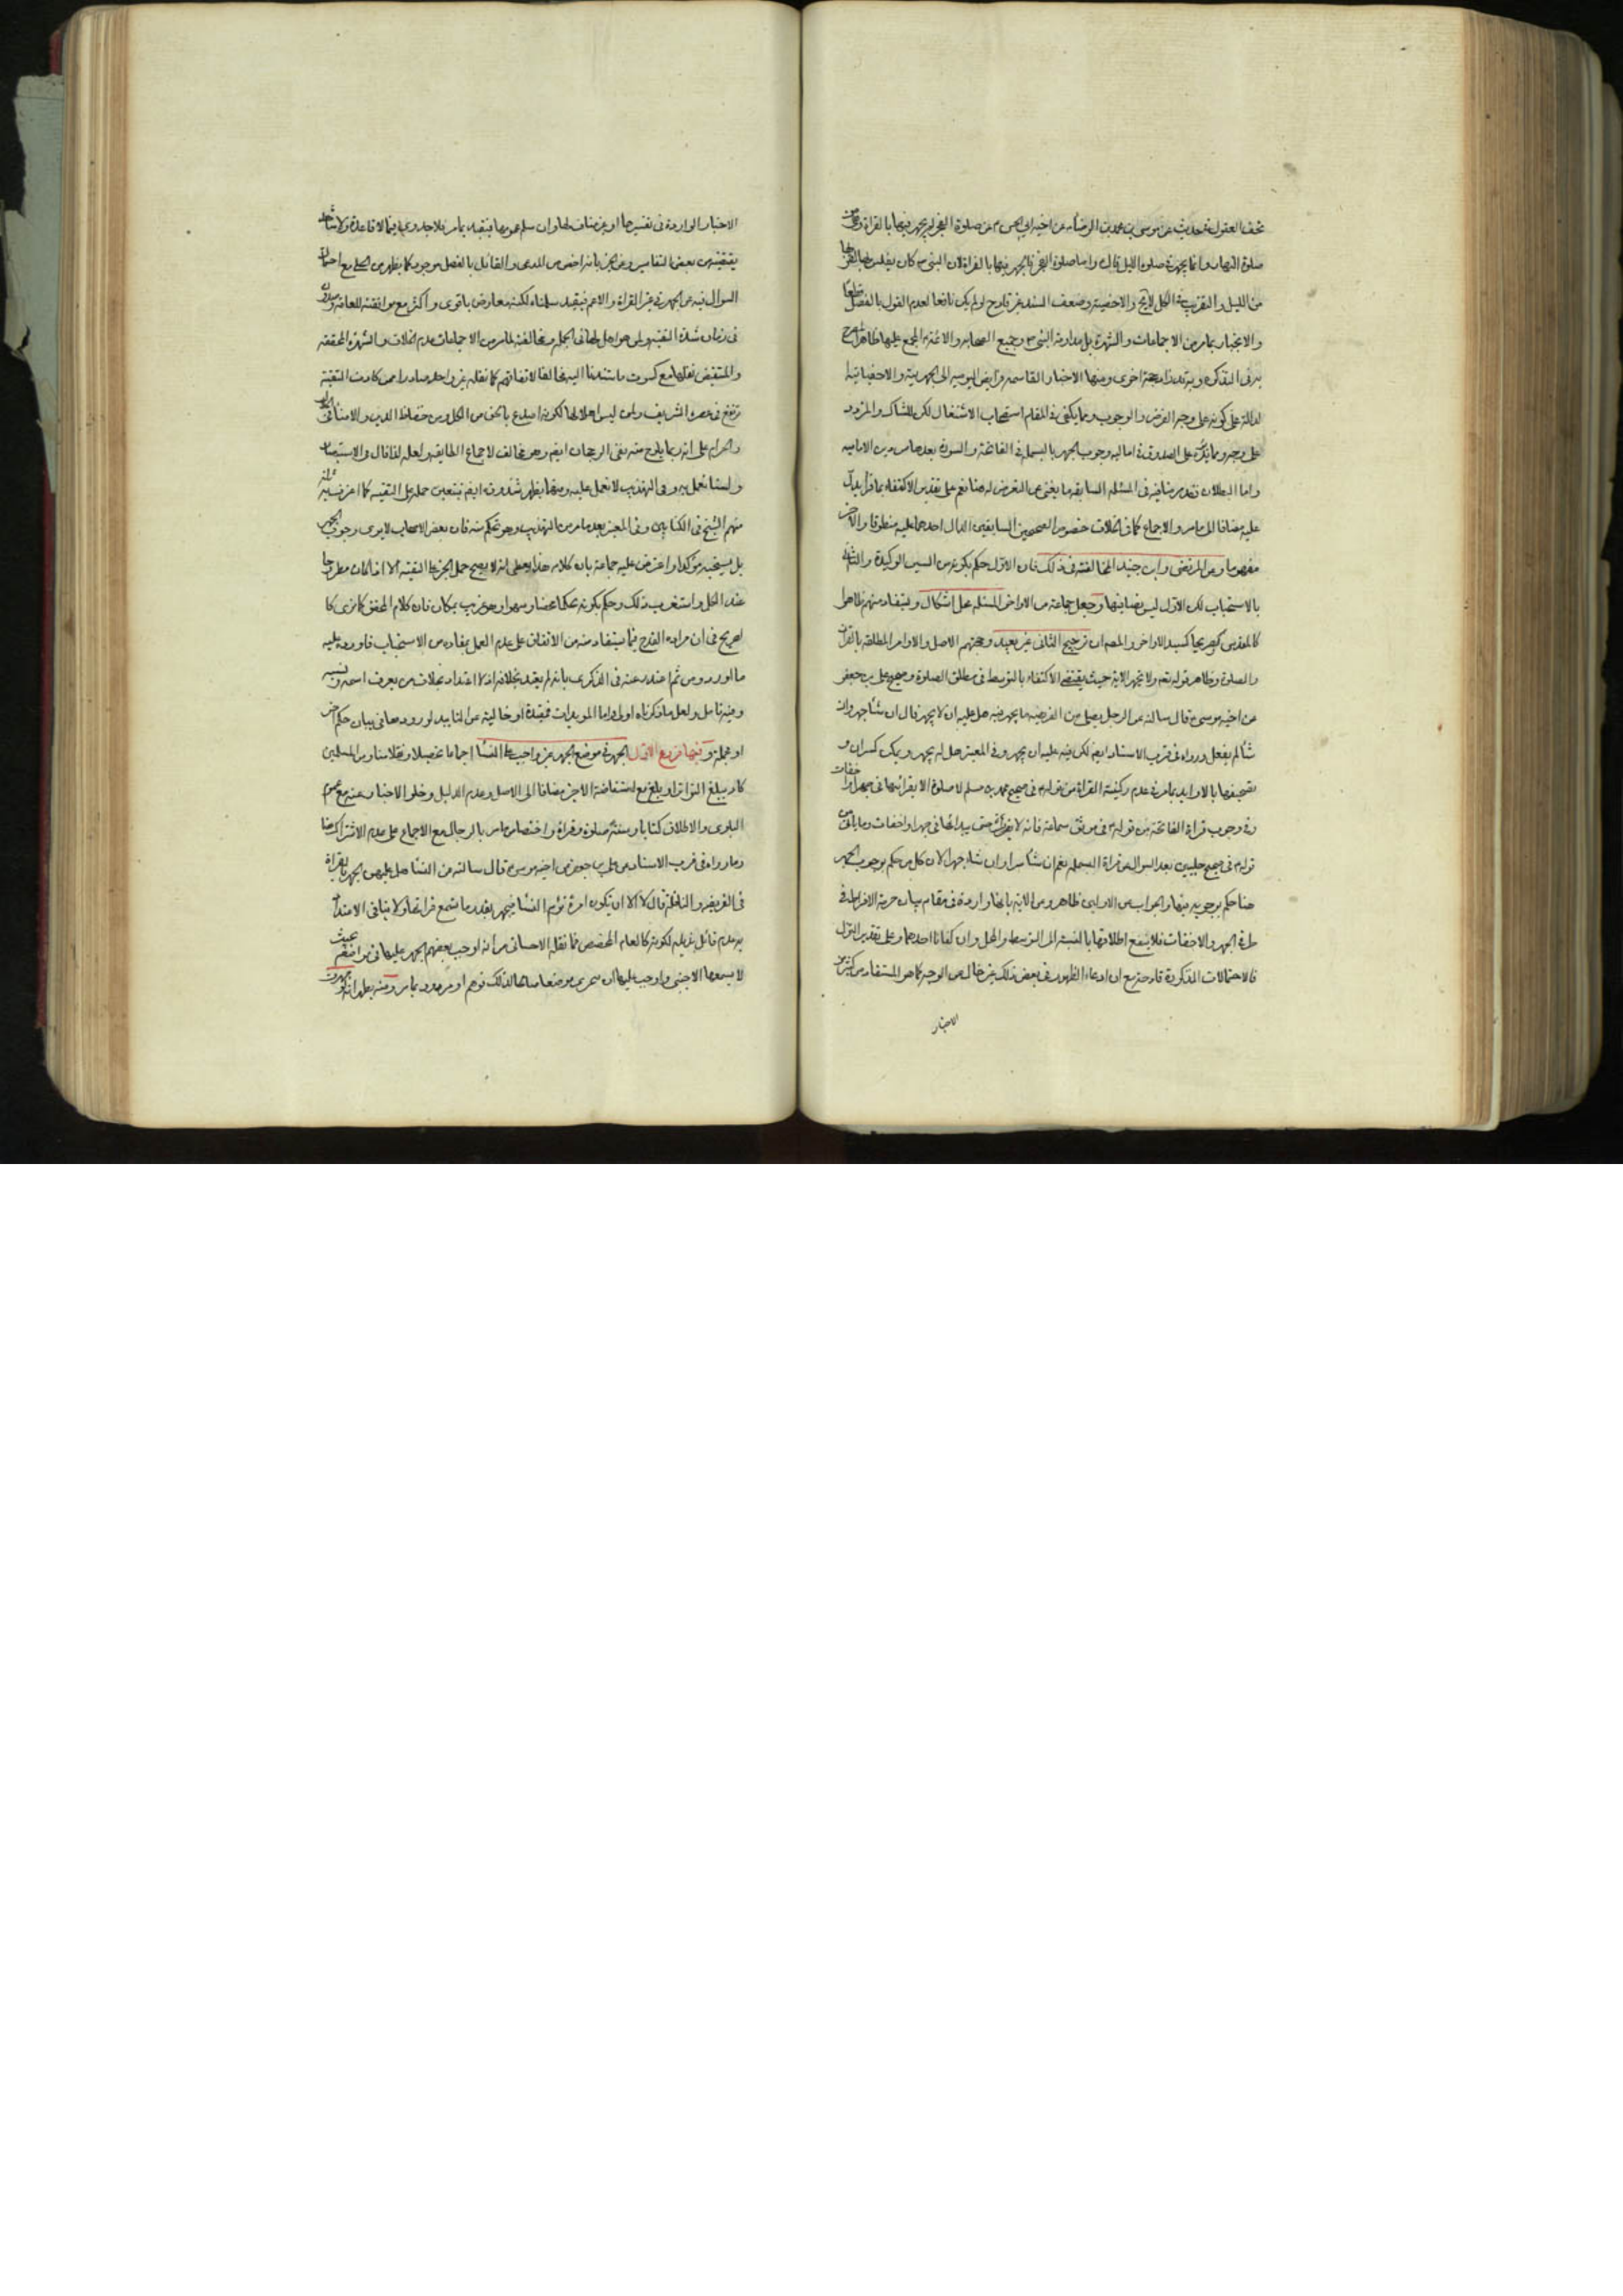 تحف العقول في حديث عن موسى بن محمد بن الرضا عن اخيه ابي الحسن م عن صلوة الفجر لم يجهر فيها بالقراءة وهي من
صلوة النهار وانما يجهر في صلوة الليل قال واما صلوة الفجر فالجهر فيها بالقراءة لان النبي ص كان يغلس بها لقربها
من الليل والتقريب في الكل لايح والاخصية وضعف السند غير قادح لو لم يكن نافعا لعدم القول بالفصل قطعا
والانجبار بما مر من الاجماعات والشهرة بل مداومة النبي ص وجميع الصحابة والائمة م المجمع عليها ظاهرا
في التذكرة وبه حجة اخرى ومنها الاخبار القاسمة فرايض اليومية الى الجهرية والاخفاتية
الدالة على كونه على وجه الفرض والوجوب ومما يكفي في المقام استصحاب الاشتغال لكن للشاك والمتردد
على وجه ومما يذكره على الصدوق في اماليه وجوب الجهر بالبسملة في الفاتحة والسورة بعدها من دين الامامية
واما البطلان فقدم ما فيه في المسئلة السابقة ما يغني عن التعرض له هنا نعم على تقدير الاكتفاء بما قرا يدل
عليه مضافا الى ما مر والاجماع كما في الخلاف خصوص الصحيحين السابقين الدال احدهما عليه منطوقا والاخر
مفهوما وعن المرتضى وابن جنيد المخالفة في ذلك فان الاول حكم بكونه من السنن الوكيدة والثاني
بالاستحباب لكن الاول ليس نصا فيها وجعل جماعة من الاواخر المسئلة محل اشكال ويستفاد منهم ظاهرا
كالمقدس او صريحا كسيد الاواخر والمصه ان ترجيح الثاني غير بعيد وحجتهم الاصل والاوامر المطلقة بالقراءة
والصلوة وظاهر قوله تعم ولا تجهر الاية حيث يقتضي الاكتفاء بالتوسط في مطلق الصلوة وصحيح علي بن جعفر
عن اخيه موسى م قال سالته عن الرجل يصلي من الفريضة ما يجهر فيه هل عليه ان لا يجهر قال ان شاء جهر وان
شاء لم يفعل ورواه في قرب الاسناد ايضا لكن فيه عليه ان يجهر وفي المعتبر هل له يجهر ويمكن كسر ان و
تضعيفها بالاوايد بما مر في عدم ركنية القراءة من قوله م في صحيح محمد بن مسلم لا صلوة الا بقراءتها في جهر او اخفات
وفي وجوب قراءة الفاتحة من قوله م في موثق سماعة فانه لا يقرا حتى يبدا بها في جهر او اخفات وما ياتي من
قوله م في صحيح حلبيين بعد السوال عن قراءة البسملة نعم ان شاء سرا وان شاء جهرا لان كل من حكم بوجوب الجهر
هنا حكم بوجوبه فيها والجواب عن الاولين ظاهر وعن الاية بانها واردة في مقام بيان حرمة الافراط في
طرفي الجهر والاخفات فلا ينفع اطلاقها بالنسبة الى التوسط والمحل وان كفانا احدهما وعلى تقدير التنزل
فالاحتمالات المذكورة قادحة مع ان ادعاء الظهور في بعض ذلك غير خال عن الوجه كما هو المستفاد من كثير من
الاخبار
الاخبار الواردة في تفسيرها او غير مناف لها وان سلم عمومها فيقيد بما مر فلا جدوى فيها الا قاعدة ولا شاهد
يقتضيه من بعض التفاسير وعن الخبر بانه اخص من المدعى والقائل بالفصل موجود كما يظهر من المحل مع احتمال
السوال فيه عن الجهر في غير القراءة والاعم فيقيد سلمناه لكنه معارض باقوى واكثر مع موافقته للعامة وصدوره
في زمان شدة التقية ولمن هو اهل لها في الجملة ومخالفته لما مر من الاجماعات وعدم الخلاف والشهرة المحققة
والمستفيض نقلها مع كسرت ما استندنا اليه مخالفا لاتفاقهم كما نقله غير واحد صادرا ممن كادت التقية
ترتفع في عصره الشريف وليس اعلالها لكونه اصدع بالحق من الكل ومن حفاظ الدين والامناء في الحلال
والحرام على انه ربما يلوح منه نفي الرجحان ايضا وهو مخالف لاجماع الطايفة ولعله لذا قال في الاستبصار
ولسنا نعمل به وفي التهذيب لا نعمل عليه ومنهما يظهر شذوذه ايضا فيتعين حمله على التقية كما عن غير واحد
منهم الشيخ في الكتابين وفي المعتبر بعد ما مر من التهذيب وهو تحكم منه فان بعض الاصحاب لا يرى وجوب الجهر
بل يستحبه مؤكدا واعترض عليه جماعة بان كلامه هذا يعطي انه لا يصح حمل الخبر على التقية الا اذا كان مطروحا
عند الكل واستغرب ذلك وحكم بكونه تحكما محضا وسهوا وهو غريب بمكان فان كلام المحقق كما ترى كا
لصريح في ان مراده القدح فيما يستفاد منه من الاتفاق على عدم العمل بمفاده من الاستحباب فاورد عليه
ما اورد ومن ثم اعتذر عنه في الذكرى بانه لم يعتد بخلافه اذ لا اعتداد بخلاف من يعرف اسمه ونسبه
وفيه تامل ولعل ما ذكرناه اولى واما المويدات فمقيدة او خالية عن التاييد لورودها في بيان حكم اخر
او مجملة وفيها فروع الاول الجهر في موضع الجهر غير واجب على النساء اجماعا محصلا ونقلا منا ومن المسلمين
كاد يبلغ التواتر او بلغ مع استفاضة الاخير مضافا الى الاصل وعدم الدليل وخلو الاخبار عنه مع عموم
البلوى والاطلاق كتابا وسنة صلوة وقراءة واختصاص ما مر بالرجال مع الاجماع على عدم الاشتراك هنا
وما رواه في قرب الاسناد عن علي بن جعفر عن اخيه موسى م قال سالته عن النساء هل عليهن الجهر بالقراءة
في الفريضة والنافلة قال لا الا ان تكون امراة تؤم النساء فتجهر بقدر ما تسمع قراءتها ولا ينافي الاستدلال
به عدم قائل بذيله لكونه كالعام المخصص فما نقله الاحسائي من انه اوجب بعضهم الجهر عليها في مواضعه بحيث
لا يسمعها الاجنبي واوجب عليها ان تتحرى موضعا صالحا لذلك توهم او مردود بما مر ومنه يظهر انه لو جهرت